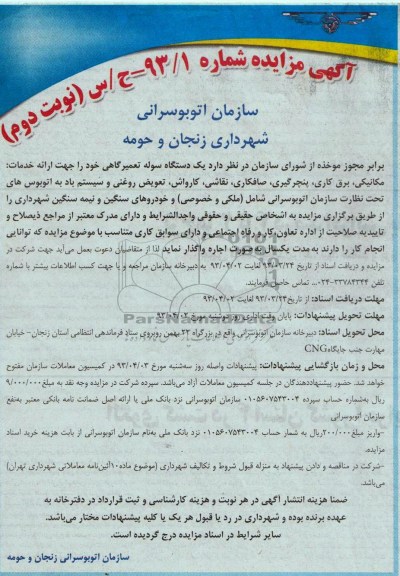 آگهی مزایده شماره ۹۳/۱-ح/س (نوبت دوم)
سازمان اتوبوسرانی
شهرداری زنجان و حومه
برابر مجوز موخذه از شورای سازمان در نظر دارد یک دستگاه سوله تعمیرگاهی خود را جهت ارائه خدمات:
مکانیکی، برق کاری، پنچرگیری، صافکاری، نقاشی، کارواش، تعویض روغنی و سیستم باد به اتوبوس های
تحت نظارت سازمان اتوبوسرانی شامل (ملکی و خصوصی) و خودروهای سنگین و نیمه سنگین شهرداری را
از طریق برگزاری مزایده به اشخاص حقیقی و حقوقی واجدالشرایط و دارای مدرک معتبر از مراجع ذیصلاح و
تاییدیه صلاحیت از اداره تعاون،کار و رفاه اجتماعی و دارای سوابق کاری متناسب با موضوع مزایده که توانایی
انجام کار را دارند به مدت یکسال به صورت اجاره واگذار نماید لذا از متقاضیان دعوت بعمل می‌آید جهت شرکت در
مزایده و دریافت اسناد از تاریخ ۹۳/۰۳/۲۴ لغایت ۹۳/۰۴/۰۲ به دبیرخانه سازمان مراجعه و یا جهت کسب اطلاعات بیشتر با شماره
تلفن ۳۳۷۸۴۳۴۴-۰۲۴ تماس حاصل فرمایند.
مهلت دریافت اسناد: از تاریخ ۹۳/۰۳/۲۴ لغایت ۹۳/۰۴/۰۲
مهلت تحویل پیشنهادات: پایان وقت اداری روز دوشنبه مورخ ۹۳/۰۴/۰۲
محل تحویل اسناد: دبیرخانه سازمان اتوبوسرانی واقع در بزرگراه ۲۲ بهمن روبروی ستاد فرماندهی انتظامی استان زنجان- خیابان
مهارت جنب جایگاه CNG
محل و زمان بازگشایی پیشنهادات: پیشنهادات واصله روز سه‌شنبه مورخ ۹۳/۰۴/۰۳ در کمیسیون معاملات سازمان مفتوح
خواهد شد. حضور پیشنهاددهندگان در جلسه کمیسیون معاملات آزاد می‌باشد. سپرده شرکت در مزایده وجه نقد به مبلغ ۹/۰۰۰/۰۰۰
ریال به‌شماره حساب سپرده ۰۱۰۵۶۰۷۵۴۳۰۰۴ سازمان اتوبوسرانی نزد بانک ملی یا ارائه اصل ضمانت نامه بانکی معتبر به‌نفع
سازمان اتوبوسرانی
-واریز مبلغ ۲۰۰/۰۰۰ ریال به شمار حساب ۰۱۰۵۶۰۷۵۴۳۰۰۴ نزد بانک ملی به‌نام سازمان اتوبوسرانی از بابت هزینه خرید اسناد
مزایده.
-شرکت در مناقصه و دادن پیشنهاد به منزله قبول شروط و تکالیف شهرداری (موضوع ماده ۱۰ آئین‌نامه معاملاتی شهرداری تهران)
می‌باشد.
ضمنا هزینه انتشار آگهی در هر نوبت و هزینه کارشناسی و ثبت قرارداد در دفترخانه به
عهده برنده بوده و شهرداری در رد یا قبول هر یک یا کلیه پیشنهادات مختار می‌باشد.
سایر شرایط در اسناد مزایده درج گردیده است.
سازمان اتوبوسرانی زنجان و حومه